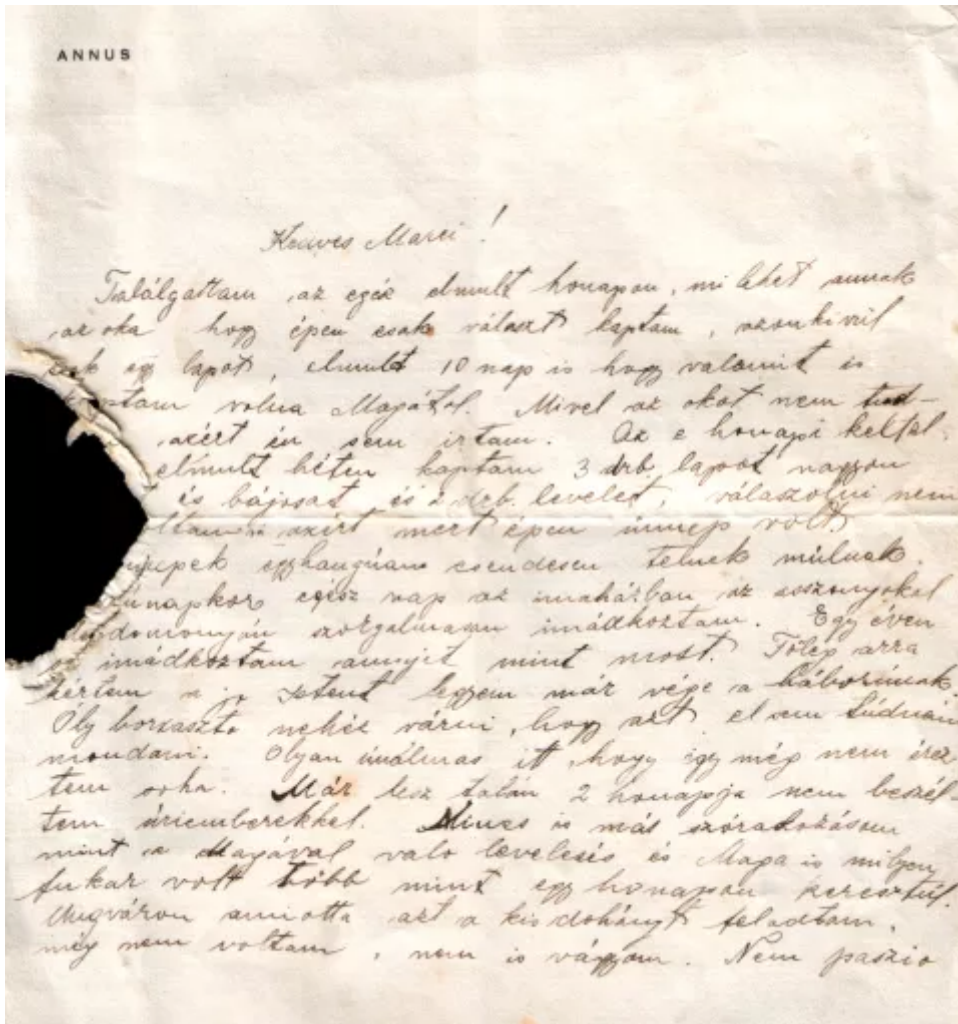 ANNUS
Kedves Marci!
Találgattam az egész elmult honapon, mi lehet annak
az oka hogy épen csak választ kaptam, azonkivül
csak egy lapot, elmult 10 nap is hogy valamit is
kaptam volna Magától. Mivel az okot nem tud-
azért én sem irtam. Az e honapi
elmult héten kaptam 3 drb. lapot nagyon
és bájosat és 2 drb. levelet, válaszolni nem
azért mert épen ünnep volt.
egyhanguan csendesen telnek mulnak.
egész nap az imaházban az asszonyokal
szorgalmasan imádkoztam. Egy éven
imádkoztam annyit mint most. Főleg arra
kértem a jo Istent legyen már vége a háborúnak.
Oly borzaszto nehéz várni, hogy azt el sem tudnám
mondani. Olyan unalmas itt, hogy igy még nem érez
tem soha. Már lesz talán 2 honapja nem beszél-
tem úriemberekkel. Nincs is más szórakozásom
mint a Magával valo levelezés és Maga is milyen
fukar volt több mint egy honapon keresztül.
Ungváron amiotta azt a kis dohányt feladtam,
még nem voltam, nem is vágyom. Nem paszio